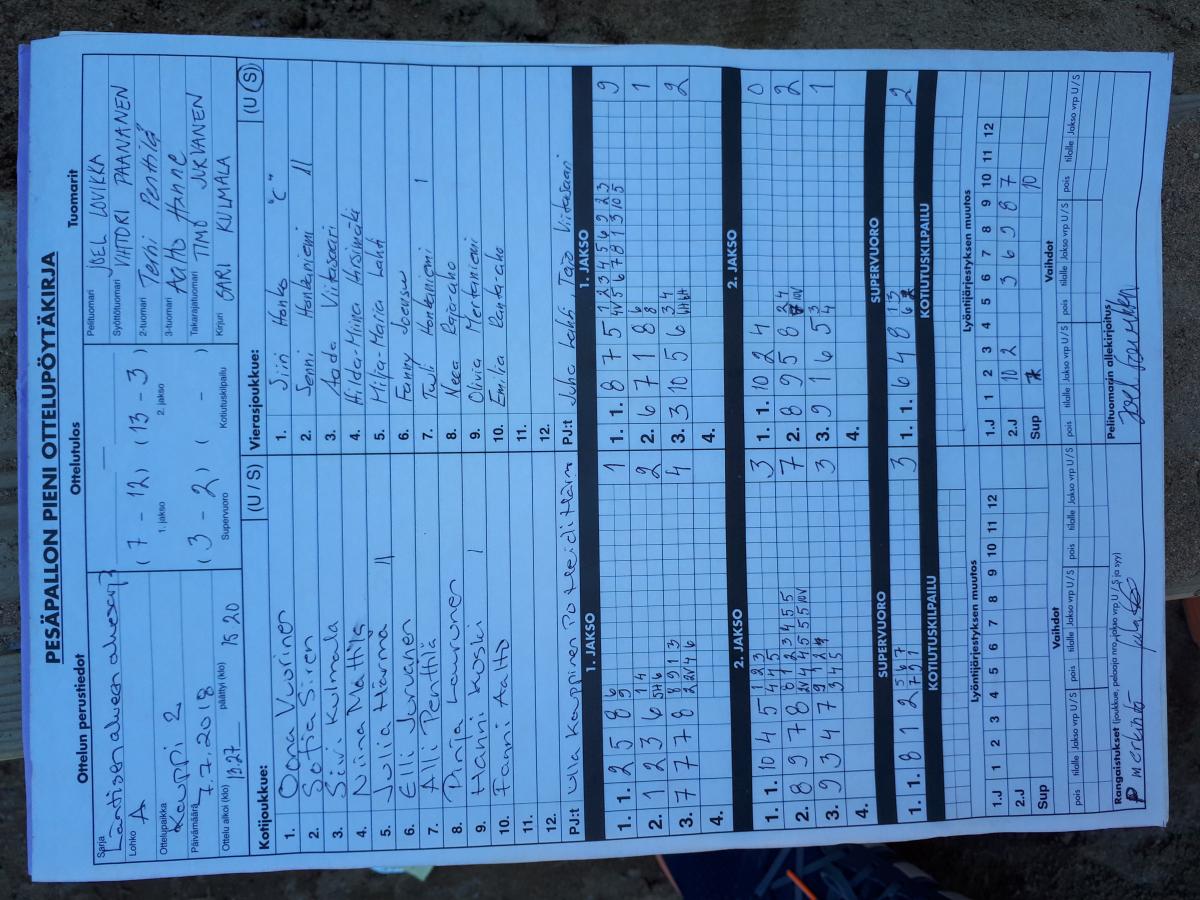 PESÄPALLON PIENI OTTELUPÖYTÄKIRJA
Ottelun perustiedot
Ottelutulos
Tuomarit
Sarja
Läntisen alueen
Lohko
A
Ottelupaikka
Kauppi 2
Päivämäärä
7.7.2018
Ottelu alkoi (klo)
päättyi (klo)
15 20
( 7 - 12 ) ( 13 - 3 )
1. jakso
2. jakso
( 3 - 2 ) ( - )
Supervuoro
Kotiutuskilpailu
Pelituomari
JOEL LOVIKKA
Syöttötuomari
VIHTORI PAANANEN
2-tuomari
Terhi Penttilä
3-tuomari
Aalto Hanne
Takarajatuomari
TIMO JURVANEN
Kirjuri
SARI KULMALA
Kotijoukkue:
(U / S)
1. Oona Vuorinen
2. Sofia Siren
3. Sivi Kulmala
4. Niina Mattila
5. Julia Härmä
6. Elli Jurvanen
7. Alli Penttilä
8. Pinja Laurunen
9. Hanni Koski
10. Fanni Aalto
11.
12.
PJ:t Ulla Kauppinen
Vierasjoukkue:
(U S)
1. Siiri Honko "C"
2. Senni Honkaniemi
3. Aada Viitasaari
4. Hilda-Miina Hirsimäki
5. Milja-Maria Lahti
6. Fanny Joensuu
7. Tuuli Honkaniemi
8. Neea Rajaraho
9. Olivia Mertaniemi
10. Emilia Rantaraho
11.
12.
PJ:t Juha Lahti, Tarja Viitasaari
1. JAKSO
1. 1. 2 5 8
1
2. 1 2 3 6
2
3. 7 7 7 8
4
4.
1. JAKSO
1. 1. 8 7 5
9
2. 6 7 1 8
1
3. 3 10 5 6
2
4.
2. JAKSO
1. 1. 10 4 5
3
2. 8 9 7 8
7
3. 9 3 4 7
3
4.
2. JAKSO
1. 1. 10 2 4
0
2. 8 9 5 8
2
3. 9 1 6 5
1
4.
SUPERVUORO
1. 1. 8 1 2
3
SUPERVUORO
1. 1. 6 4 8
2
KOTIUTUSKILPAILU
KOTIUTUSKILPAILU
Lyöntijärjestyksen muutos
1 2 3 4 5 6 7 8 9 10 11 12
1.J
2.J
Sup
Vaihdot
pois tilalle Jakso vrp U / S pois tilalle Jakso vrp U / S pois tilalle Jakso vrp U / S
Lyöntijärjestyksen muutos
1 2 3 4 5 6 7 8 9 10 11 12
1.J
2.J 10 2 3 6 9 8 7
Sup 10
Vaihdot
pois tilalle Jakso vrp U / S pois tilalle Jakso vrp U / S pois tilalle Jakso vrp U / S
Rangaistukset (joukkue, pelaaja nro, jakso vrp U / S ja syy)
merkintö
Pelituomarin allekirjoitus